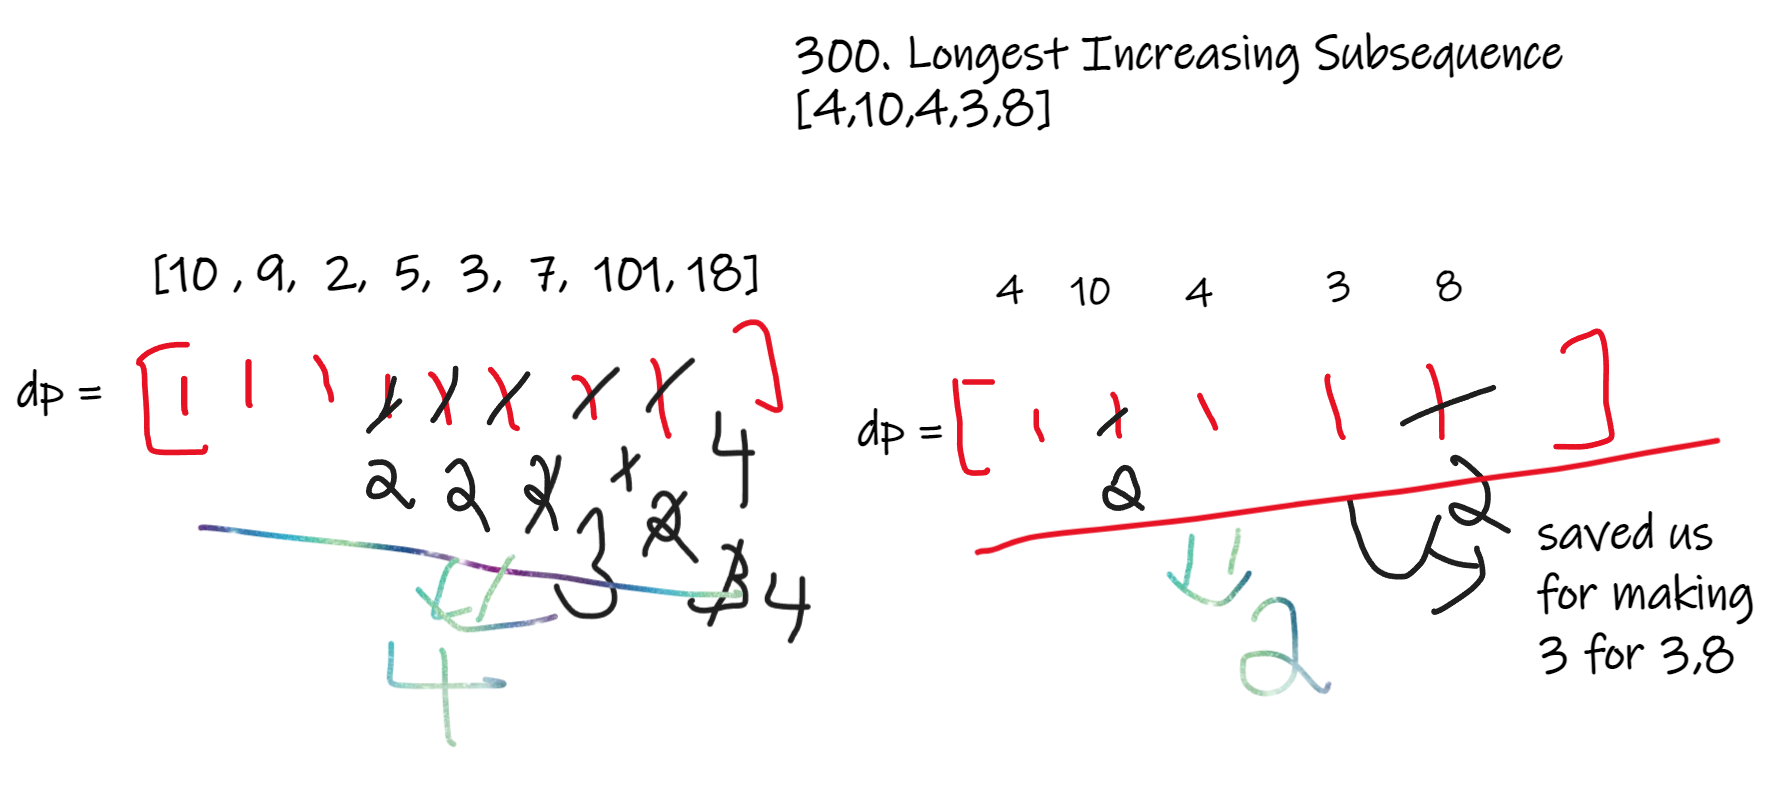 300. Longest Increasing Subsequence
[4,10,4,3,8]
[10 , 9, 2, 5, 3, 7, 101, 18]
dp = [ 1 1 1 1 1 1 1 1 ]
2 2 2 x 2 4
3 3 4
4
4 10 4 3 8
dp = [ 1 1 1 1 1 ]
2 2
2
saved us
for making
3 for 3,8